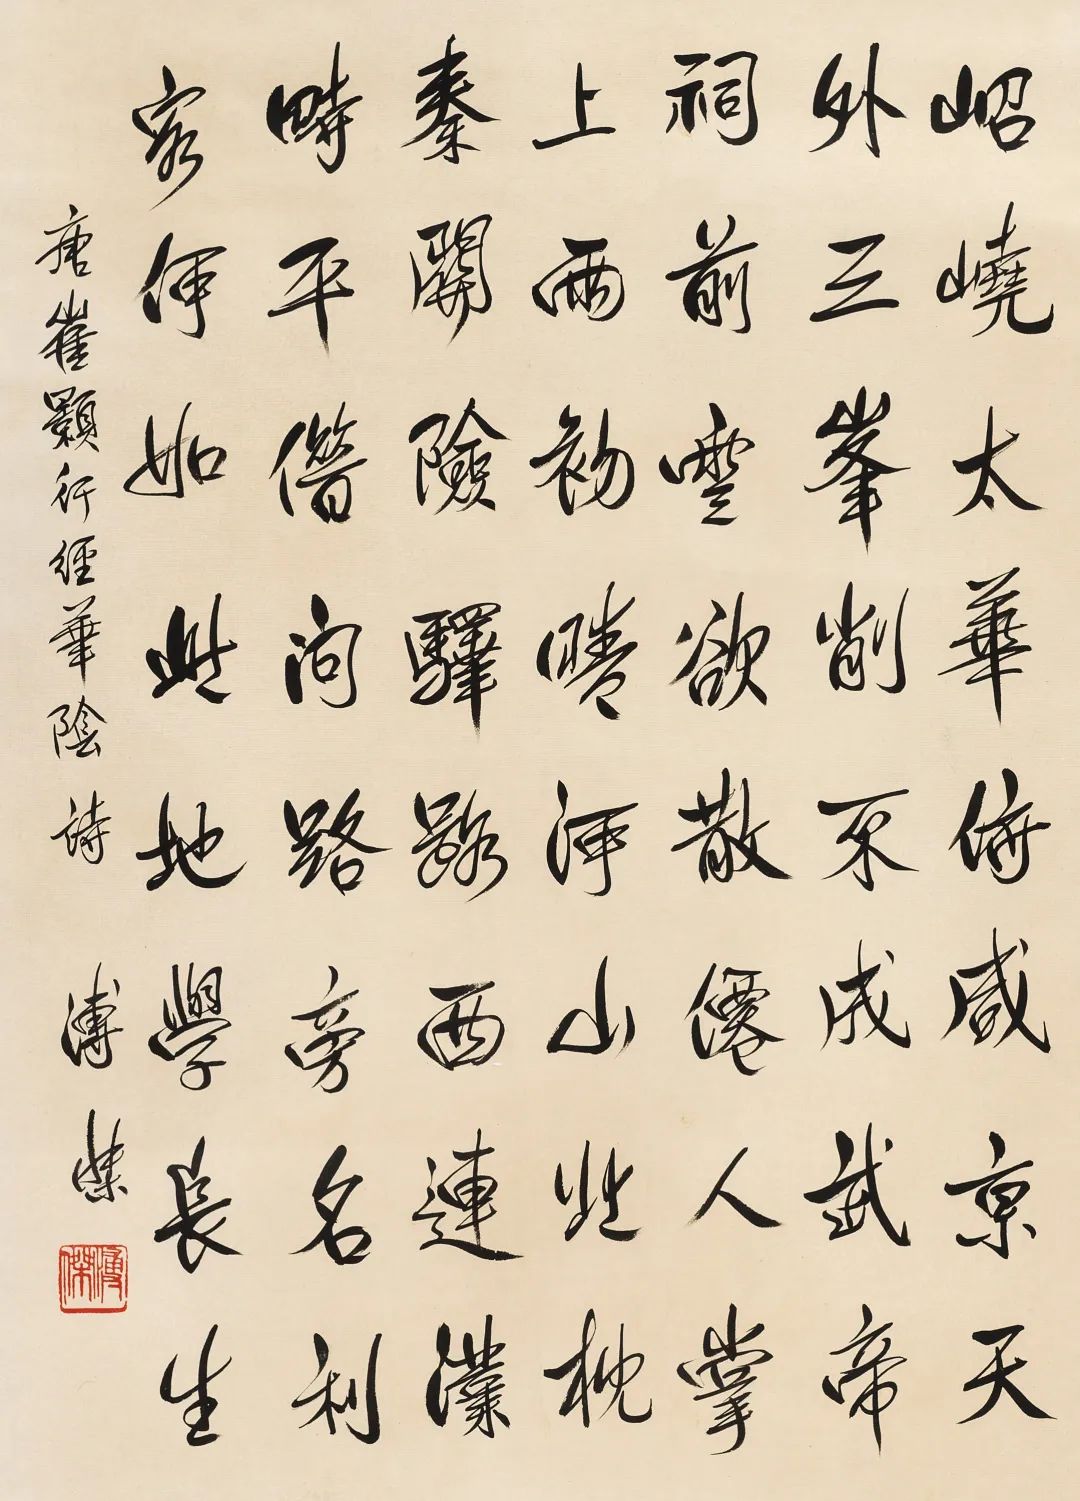 岹嶢太華俯咸京天
外三峯削不成武帝
祠前雲欲散僊人掌
上雨初晴河山北枕
秦關險驛路西連漢
畤平借問路旁名利
客何如此地學長生
唐崔顥行經華陰詩 溥傑
溥傑